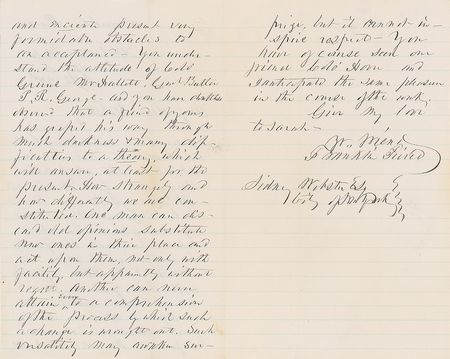 and ancient present very
formidable obstacles to
an acceptance - You under-
stand the attitude of Col
Greene Mr Hallett, Genl Butler
J. R. George - and you have doubtless
observed that a friend of yours
has groped his way through
much darkness & many dif-
ficulties to a theory, which
will answer, at least for the
present - How strangely and
how differently we are con-
stituted. One man can dis-
card old opinions substitute
new ones in their place and
act upon them, not only with
facility but apparently without
regret another can never
attain even to a comprehension
of the process by which such
a change is wrought out. Such
versatility may awaken sur-
prize, but it cannot in-
spire respect - You
have of course seen our
friend Col and
I anticipate the same pleasure
in the course of the week.
Give my love
to Sarah -
Yr. friend
Franklin Pierce
Sidney Webster Esq
City of N. York